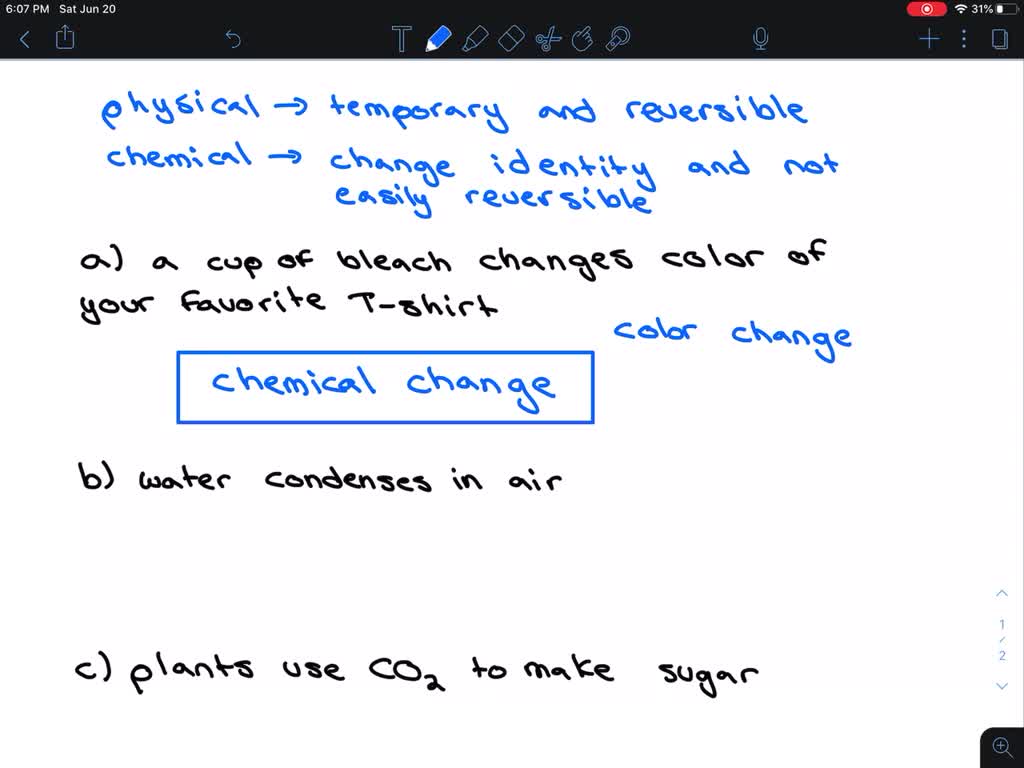 6:07 PM Sat Jun 20
31%
T
physical → temporary and reversible
chemical → change identity and not
easily reversible
a) a cup of bleach changes color of
your favorite T-shirt
color change
chemical change
b) water condenses in air
1
/
2
c) plants use CO2 to make sugar